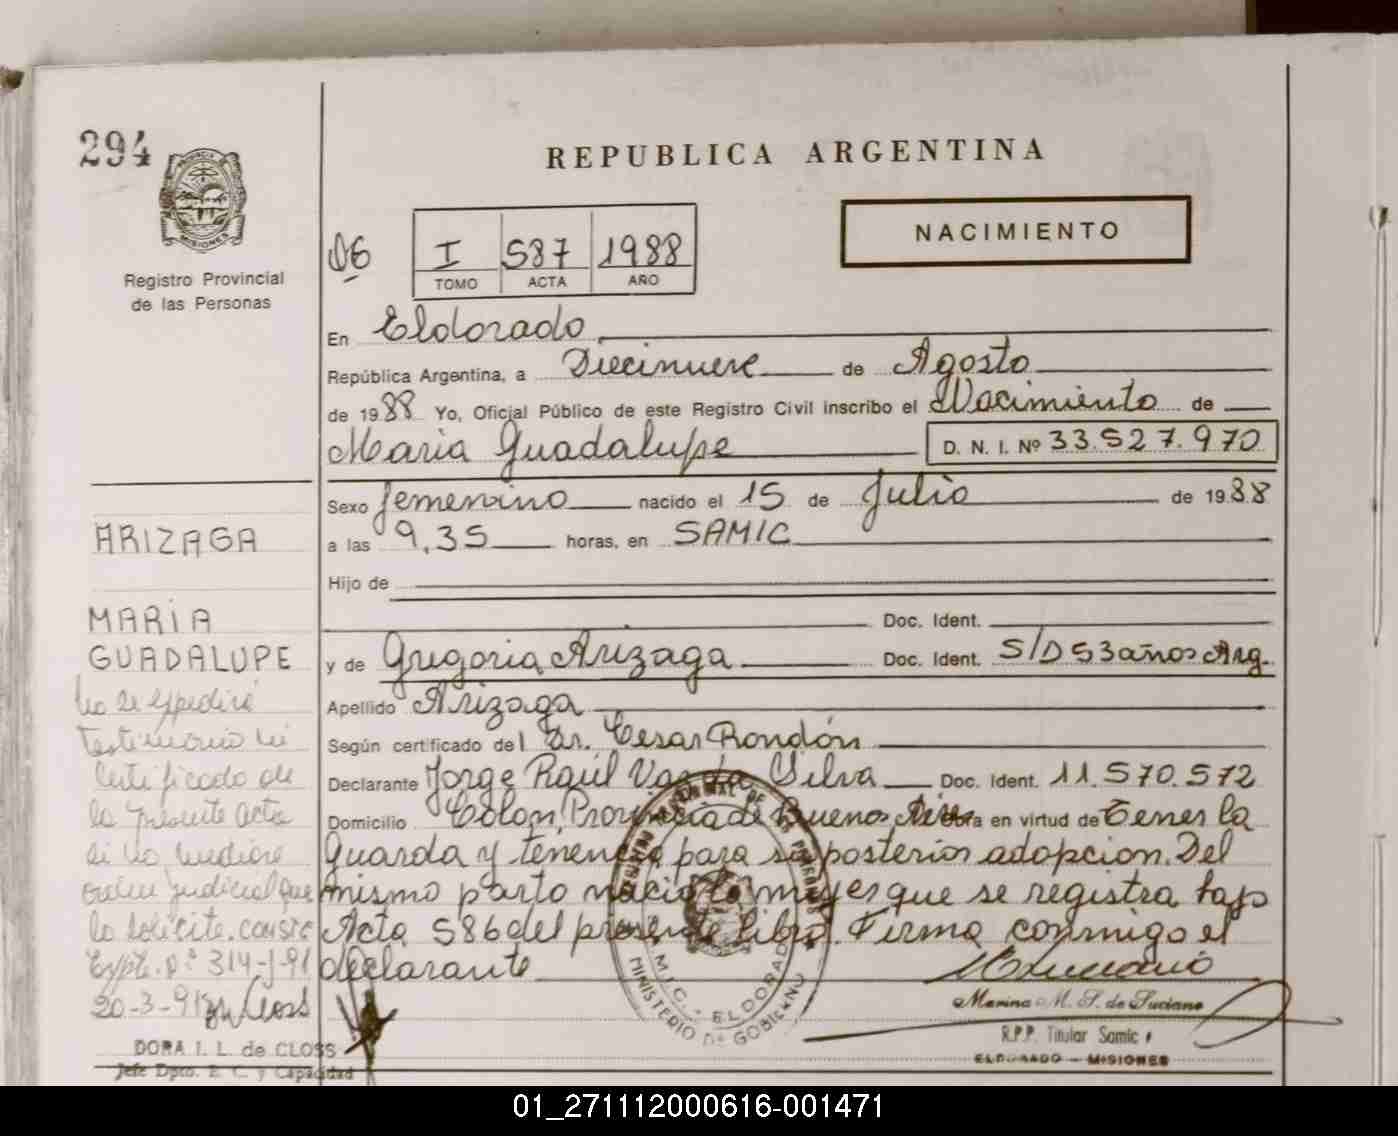 294
PROVINCIA DE
MISIONES
Registro Provincial
de las Personas
REPUBLICA ARGENTINA
NACIMIENTO
06
I 587 1988
TOMO ACTA AÑO
En Eldorado
República Argentina, a Diecinueve de Agosto
de 1988 Yo, Oficial Público de este Registro Civil inscribo el Nacimiento de
Maria Guadalupe D. N. I. Nº 33.527.970
Sexo femenino nacido el 15 de Julio de 1988
a las 9,35 horas, en SAMIC
Hijo de
Doc. Ident.
y de Gregoria Arizaga Doc. Ident. S/D 53 años Arg.
Apellido Arizaga
Según certificado del Dr. Cesar Rondón
Declarante Jorge Raúl Silva Doc. Ident. 11.570.572
Domicilio Colon, Provincia de Buenos Aires obra en virtud de Tener la
Guarda y tenencia para su posterior adopcion. Del
mismo parto nacio la mujer que se registra bajo
Acta 586 del presente libro. Firma conmigo el
declarante
Marina M. S. de Luciano
R.P.P. Titular Samic
ELDORADO - MISIONES
ARIZAGA
MARIA
GUADALUPE
No se expedirá
testimonio ni
certificado de
la presente acta
si no mediare
orden judicial que
lo solicite. Conste
Expte. nº 314-J-91
20-3-91
DORA I. L. de CLOSS
Jefe Dpto. E. C. y Capacidad
MIC. - ELDORADO
MINISTERIO DE GOBIERNO
01_271112000616-001471